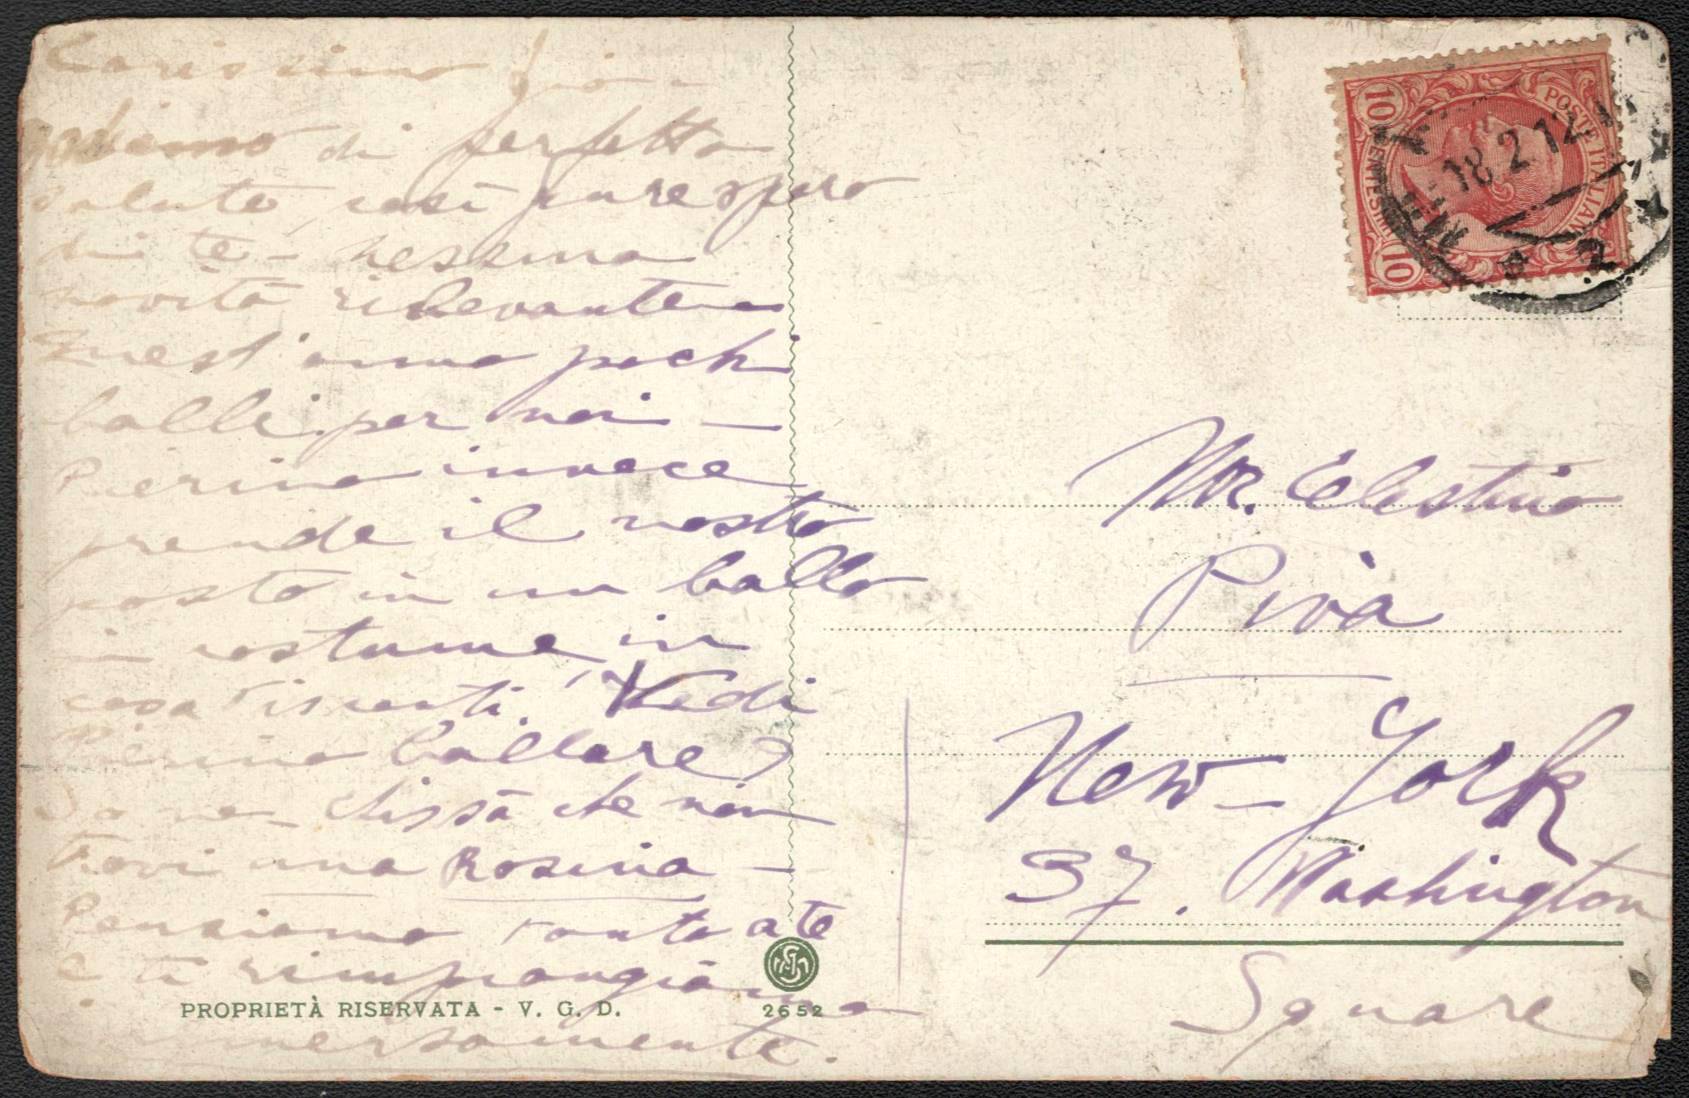 Carissimo Gio -
godiamo di perfetta
salute, così pure spero
di te - nessuna
novità rilevante -
Quest'anno pochi
balli per noi -
Pierina invece
prende il nostro
posto in un ballo
in costume, in
casa Vedi
Pierina ballare?
Io no - chissà che non
trovi una Rosina -
Pensiamo tanto a te
e ti rimpiangiamo
immensamente.
PROPRIETÀ RISERVATA - V. G. D.
2652
POSTE ITALIANE
10
CENTESIMI
10
18.2.12
2
Mr. Celestino
Piva
New-York
37. Washington
Square